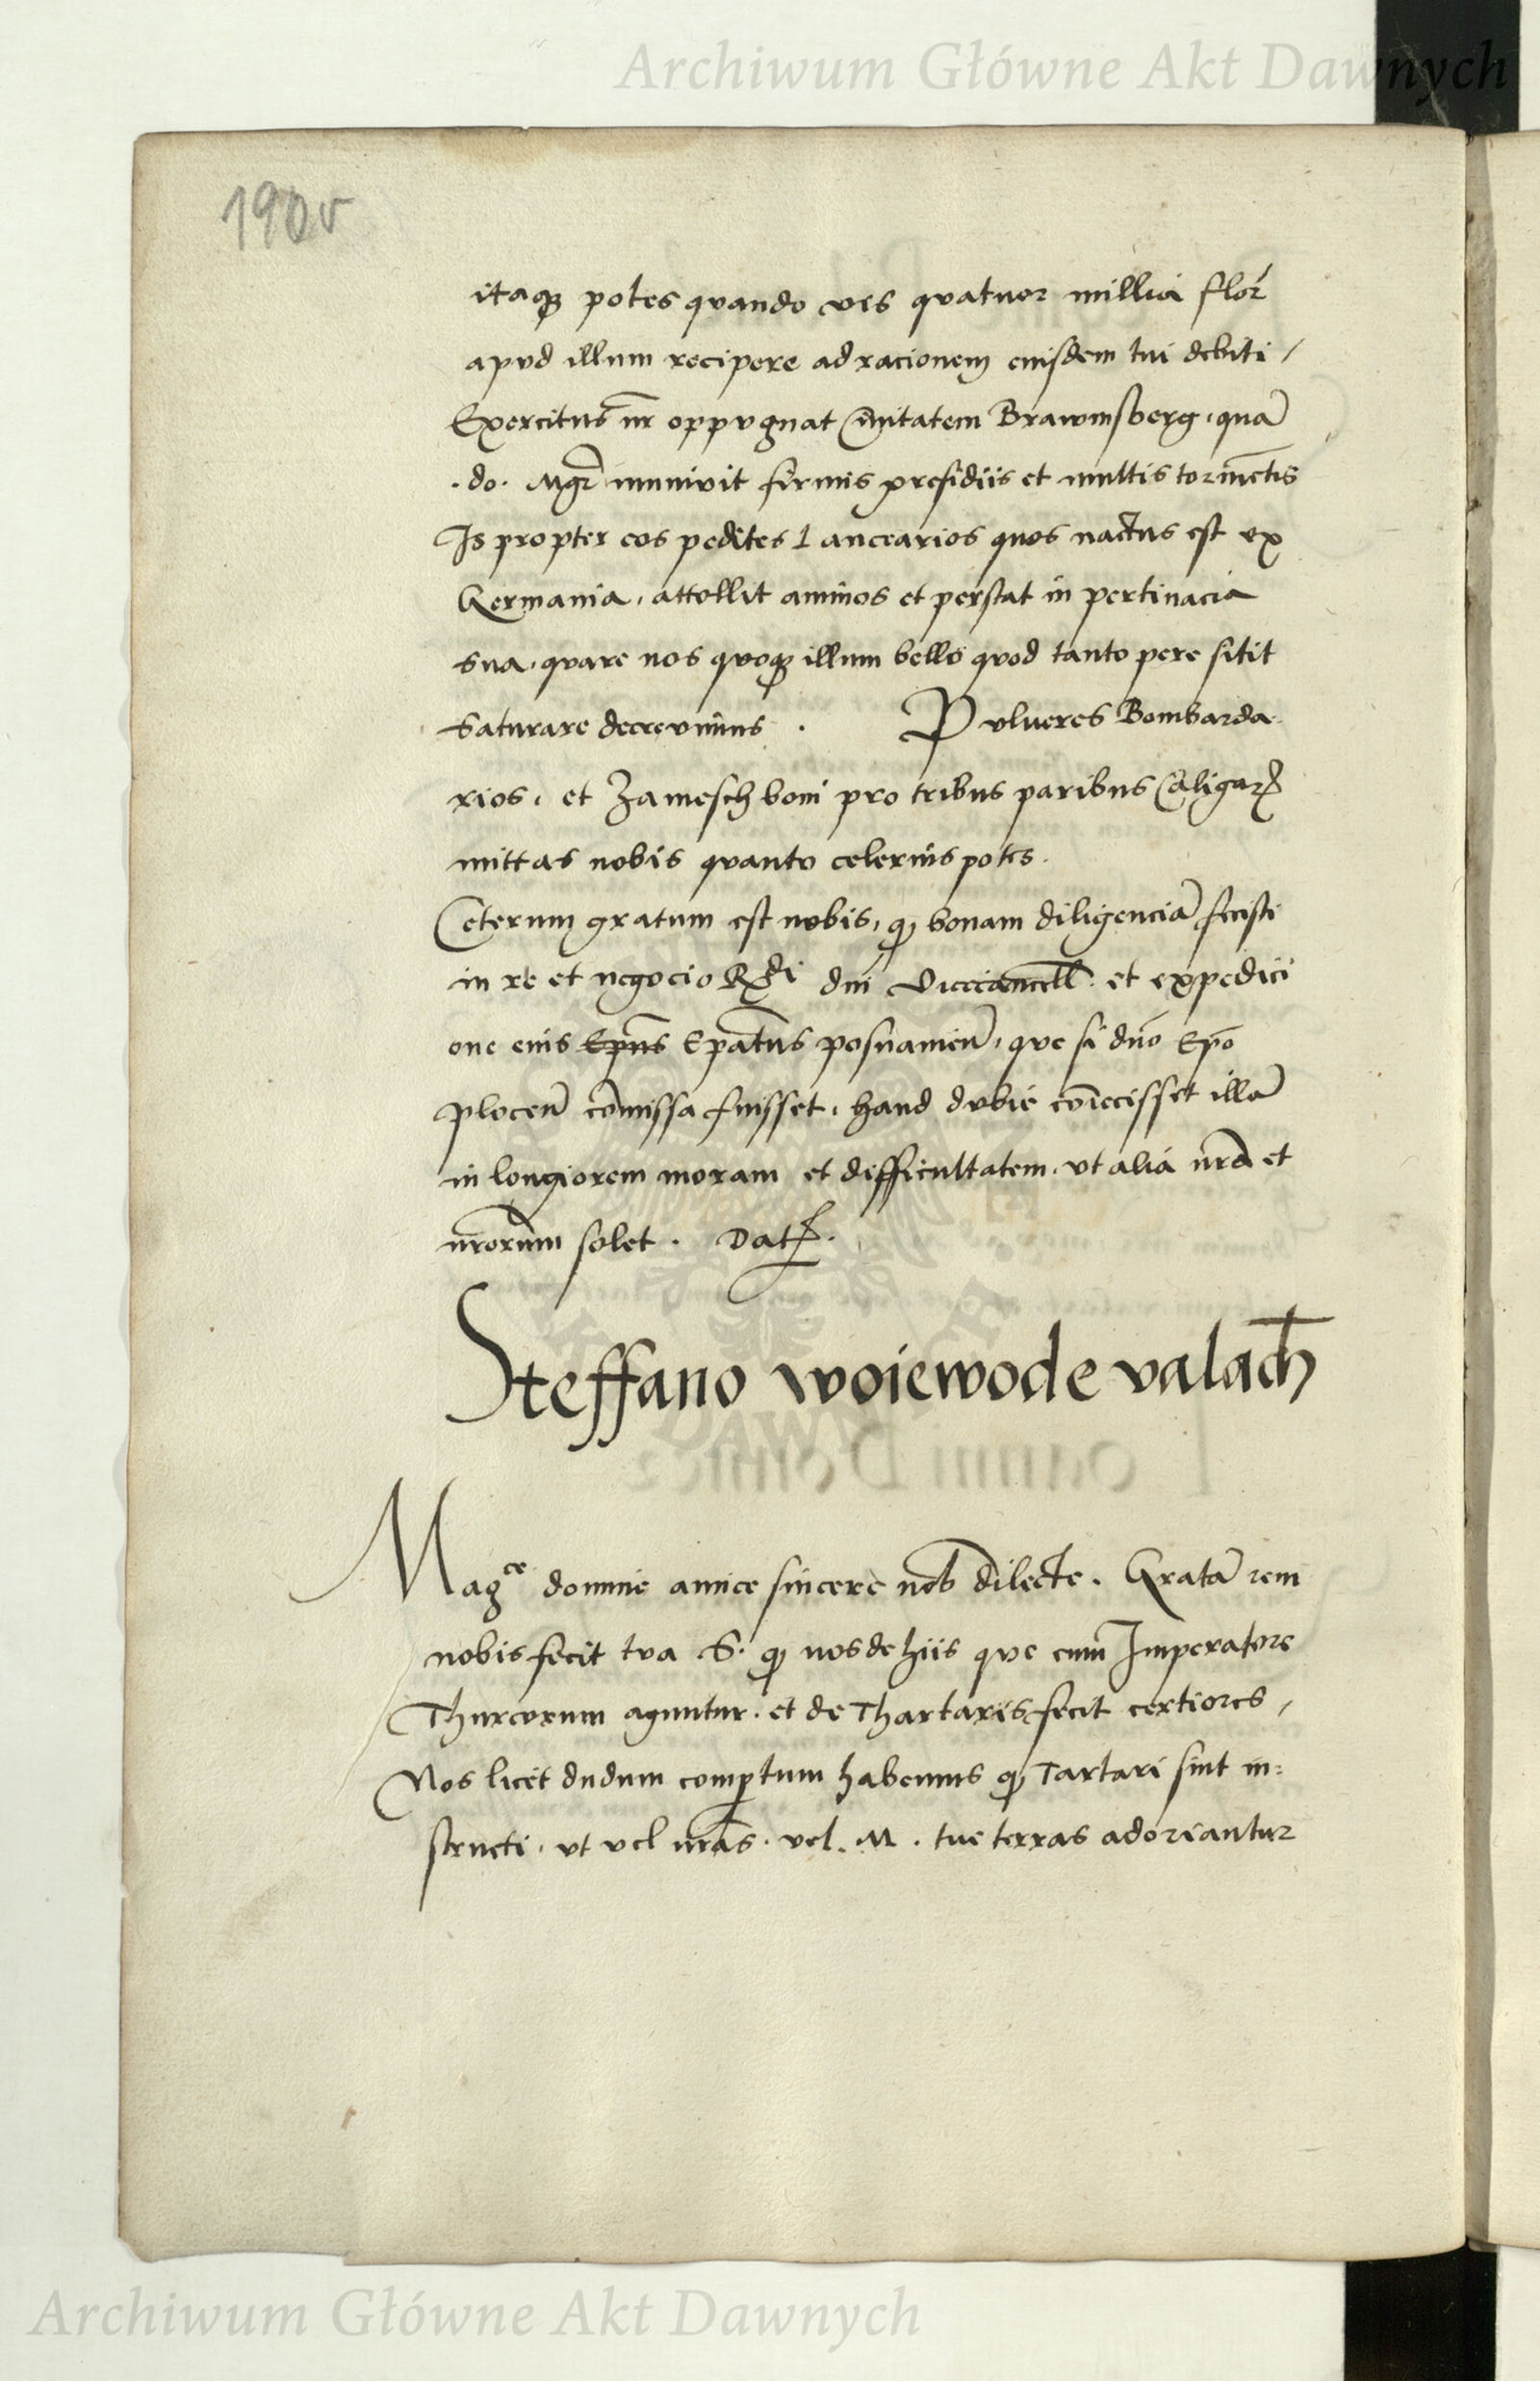 Archiwum Główne Akt Dawnych
190v
itaqꝫ potes quando ves quatuor millia flor̄
apud illum recipere ad racionem eiusdem tui debiti /
Exercitus nr̄ oppugnat Civitatem Brawnsberg, quā
.do. Mgr̄ munivit firmis presidiis et multis tormētis
Is propter eos pedites lancearios quos nactus est ex
Germania, attollit animos et perstat in pertinacia
sua, quare nos quoqꝫ illum bello quod tanto pere sitit
saturare decrevimus . Pulveres Bombarda
rios, et Zamesch boni pro tribus paribus Caligarꝝ
mittas nobis quanto celerius potes.
Ceterum gratum est nobis, ꝙ bonam diligenciā fecisti
in re et negocio R̄di dni Vicecancell. et expedici
one eius Epūs Ep̄atus posnamieñ, que si dn̄o Ep̄o
plocen̄ cōmissa fuisset, haud dubie cōiecisset illā
in longiorem moram et difficultatem, ut alia nr̄a et
nr̄orum solet . Datꝭ.
Steffano woiewode valach̄
Magce domine amice sincere nob̄ dilecte. Gratā rem
nobis fecit tua S. ꝙ nos de hiis que cum Imperatore
Thurcorum aguntur. et de Thartaris fecit certiores /
Nos licet dudum comꝑtum habemus ꝙ Tartari sint in=
structi, ut vel nr̄as. vel. M. tue terras adoriantur
Archiwum Główne Akt Dawnych